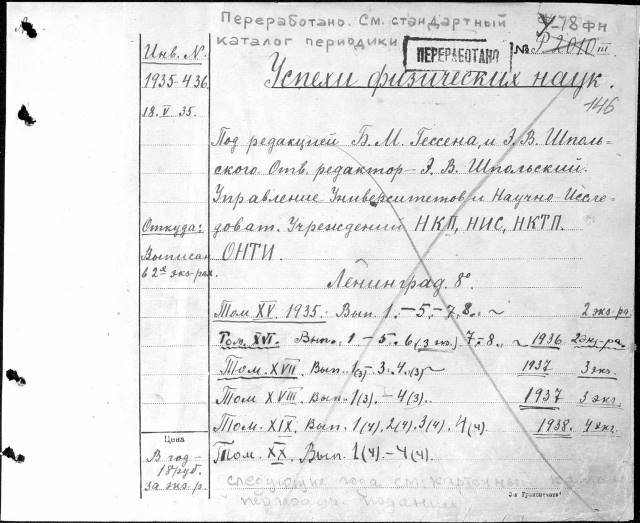 Переработано. См. стандартный
каталог периодики
У-78 фн
ПЕРЕРАБОТАНО
№ Р 2010 III
Инв. №
1935-436
18.V 35.
Успехи физических наук.
146
Под редакцией Б. М. Гессена, и Э. В. Шполь-
ского. Отв. редактор - Э. В. Шпольский.
Управление Университетов и Научно-Иссле-
доват. Учреждений НКП, НИС, НКТП.
ОНТИ.
Откуда:
Выписан
в 2х экз-рах.
Ленинград. 8°
Том XV. 1935. Вып. 1. - 5. - 7, 8. 2 экз-ра.
Том. XVI. Вып. 1 - 5. 6 (3 экз.) 7. - 8. 1936 2 экз-ра.
Том. XVII. Вып. 1(3) - 3. 4.(3) 1937 3 экз.
Том XVIII. Вып. 1(3). - 4(3). 1937 3 экз.
Том. XIX. Вып. 1(4), 2(4). 3(4). 4(4) 1938. 4 экз.
Том. XX. Вып. 1(4). - 4(4).
Цена
В год -
18 руб.
за экз-р.
следующие года см. карточный
период. изданий